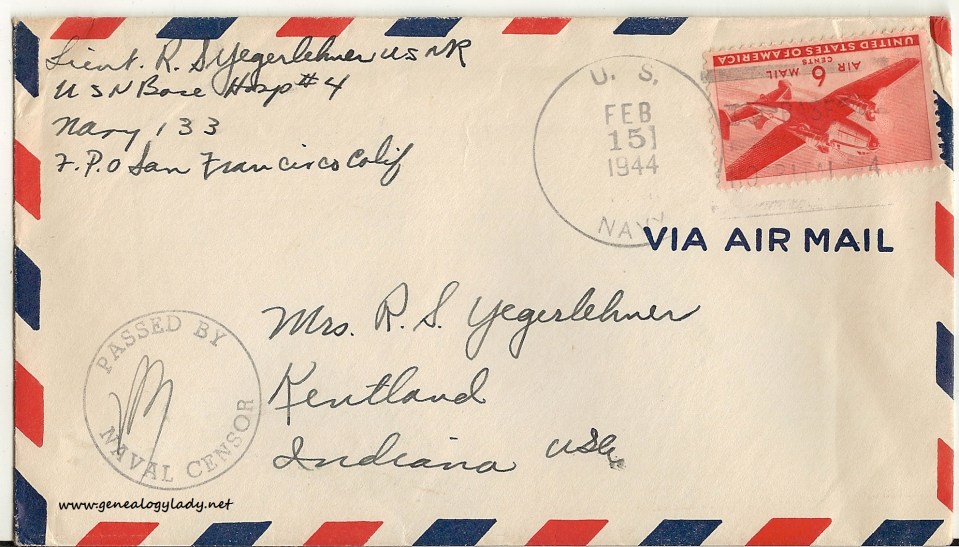 Lieut. R. S Yegerlehner USNR
USN Base Hosp #4
Navy 133
F.P.O San Francisco Calif
U. S.
FEB
151
1944
NAVY
UNITED STATES OF AMERICA
AIR MAIL
6
CENTS
VIA AIR MAIL
Mrs. R. S. Yegerlehner
Kentland
Indiana USA
PASSED BY
NAVAL CENSOR
www.genealogylady.net